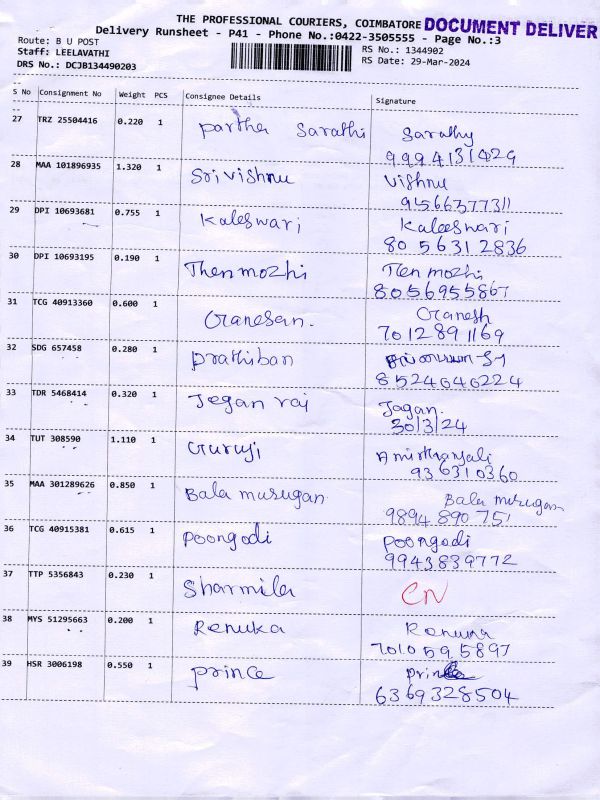 THE PROFESSIONAL COURIERS, COIMBATORE DOCUMENT DELIVER
Delivery Runsheet - P41 - Phone No.:0422-3505555 - Page No.:3
Route: B U POST
Staff: LEELAVATHI
DRS No.: DCJB134490203
RS No.: 1344902
RS Date: 29-Mar-2024
S No Consignment No Weight PCS Consignee Details Signature
27 TRZ 25504416 0.220 1 Partha Sarathi Sarathy
9994131429
28 MAA 101896935 1.320 1 Srivishnu Vishnu
9566377311
29 DPI 10693681 0.755 1 Kaleswari Kaleeswari
80 5631 2836
30 DPI 10693195 0.190 1 Thenmozhi Then mozhi
8056955867
31 TCG 40913360 0.600 1 Ganesan. Ganesh
7012891169
32 SDG 657458 0.280 1 Prathiban
8524646224
33 TDR 5468414 0.320 1 Jegan raj Jagan.
30/3/24
34 TUT 308590 1.110 1 Guruji Amirthanjali
936310360
35 MAA 301289626 0.850 1 Bala murugan Bala murugan
9894 890 751
36 TCG 40915381 0.615 1 Poongodi Poongodi
9943839772
37 TTP 5356843 0.230 1 Sharmila CN
38 MYS 51295663 0.200 1 Renuka Renuka
7010595897
39 HSR 3006198 0.550 1 prince prince
6369328504